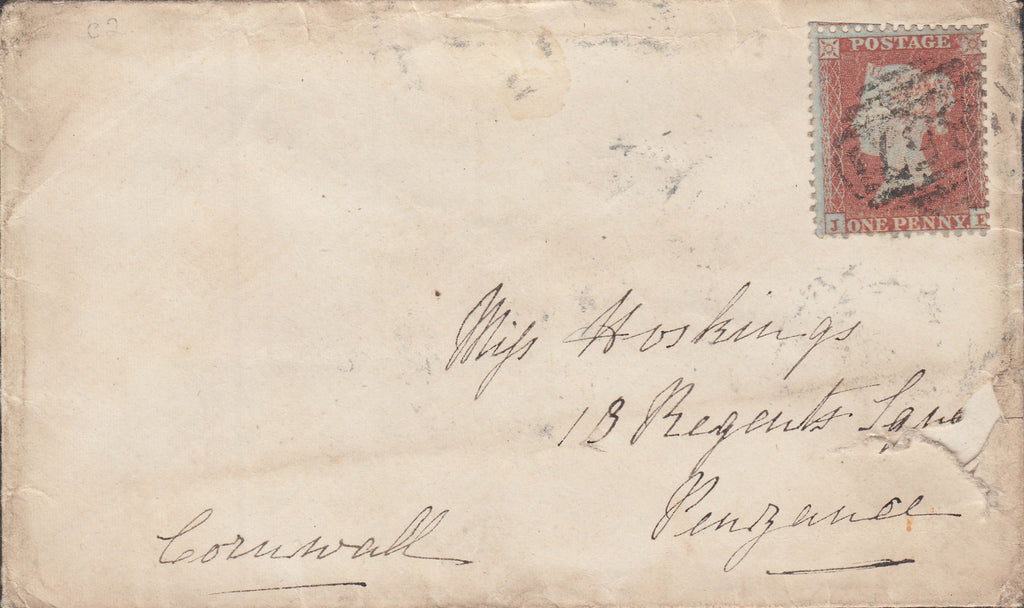 C2
POSTAGE
J ONE PENNY. E
Miss Hoskings
18 Regents Lane
Penzance
Cornwall